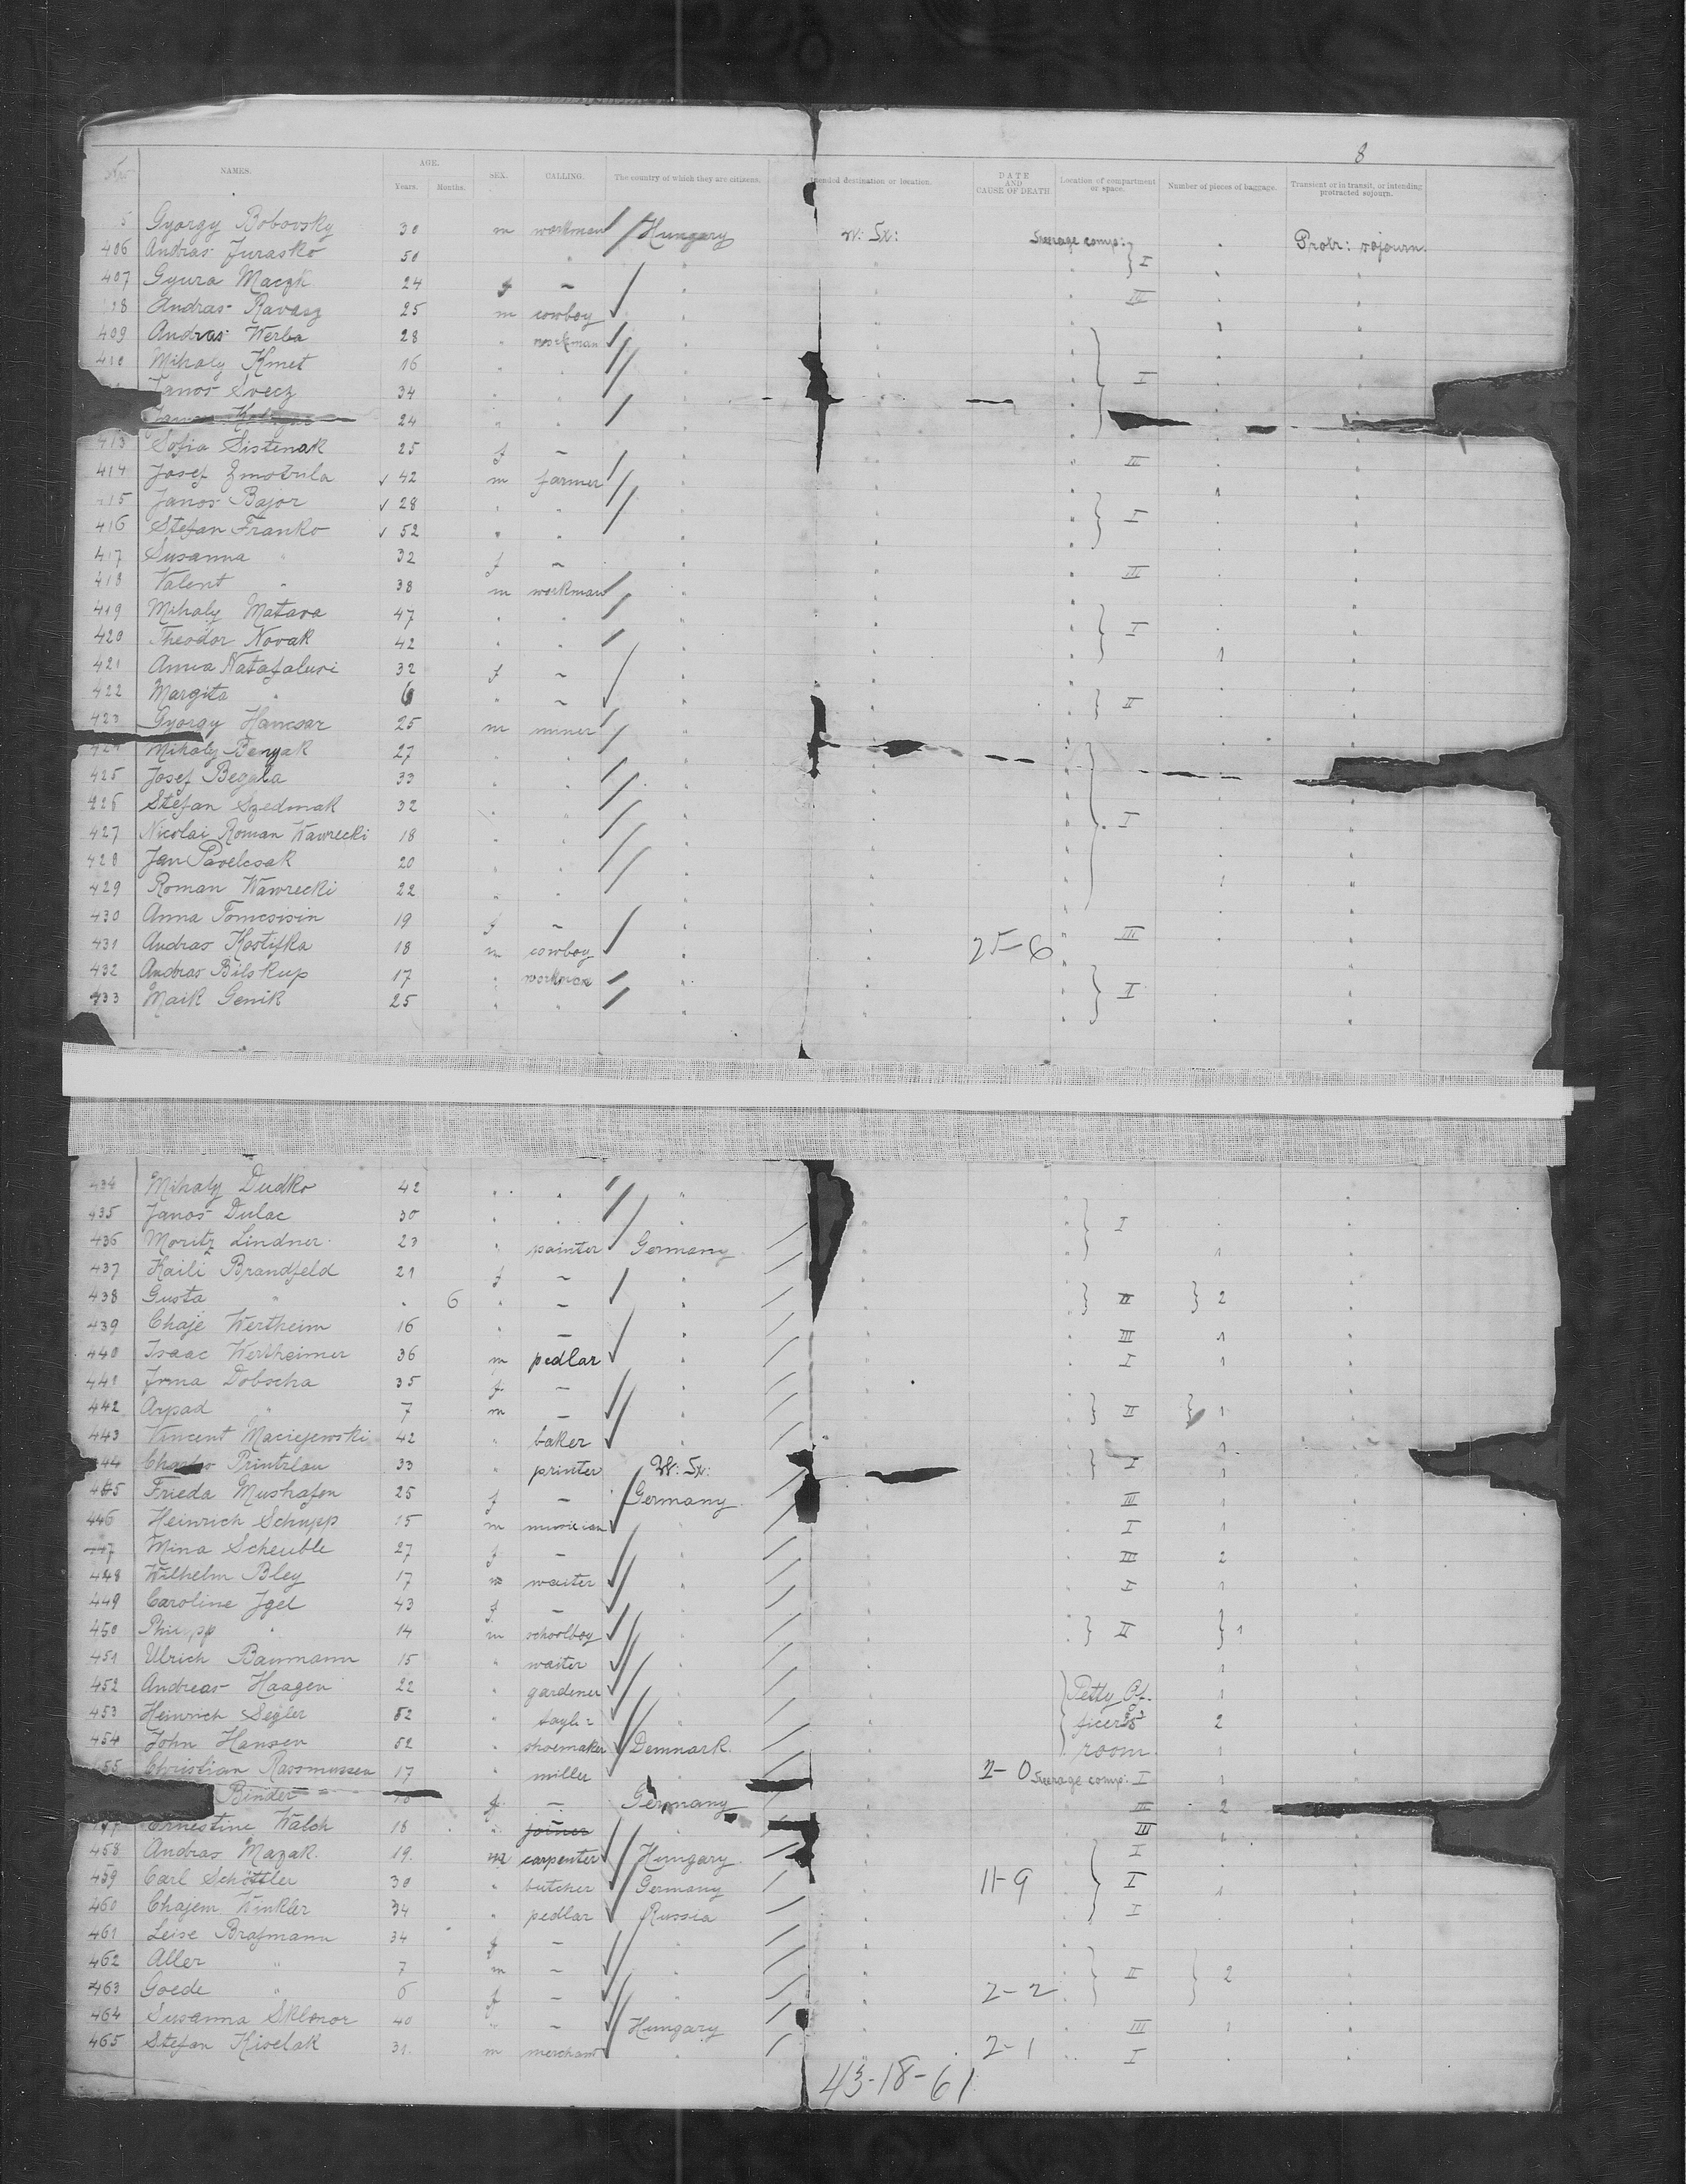 8
No NAMES. AGE. Years. Months. SEX. CALLING. The country of which they are citizens. Intended destination or location. DATE AND CAUSE OF DEATH Location of compartment or space. Number of pieces of baggage. Transient or in transit, or intending protracted sojourn.
5 Gyorgy Bobovsky 30 m workman Hungary U: St: Steerage comp: Protr: sojourn
406 Andras Jurasko 50 " I
407 Gyura Maczk 24 f – III
408 Andras Ravasz 25 m cowboy 1
409 Andras Werba 28 " workman
410 Mihaly Kmet 16 I
Janos Svecz 34
24
413 Sofia Sistenak 25 f – III
414 Josef Zmotula 42 m farmer 1
415 Janos Bajor 28 I
416 Stefan Franko 52
417 Susanna " 32 f – III
418 Valent " 38 m workman
419 Mihaly Matava 47 I
420 Theodor Novak 42 1
421 Anna Natafalusi 32 f –
422 Margita " 6 " – II
423 Gyorgy Hamcsar 25 m miner
424 Mihaly Benyak 27
425 Josef Begala 33
426 Stefan Szedmak 32 I
427 Nicolai Roman Wawrecki 18
428 Jan Pavelcsak 20
429 Roman Wawrecki 22 1
430 Anna Tomcsisin 19 f – III
431 Andras Kostifka 18 m cowboy 25-6
432 Andras Bilskup 17 " workman I
433 Maik Genik 25
434 Mihaly Dudko 42
435 Janos Dulac 30 I
436 Moritz Lindner 23 " painter Germany 1
437 Kaili Brandfeld 21 f –
438 Gusta " 6 " – II 2
439 Chaje Wertheim 16 " – III 1
440 Isaac Wertheimer 36 m pedlar I 1
441 Irma Dobscha 35 f –
442 Arpad " 7 m – II 1
443 Vincent Maciejewski 42 " baker 1
444 Printzlau 33 " printer U: St: I 1
445 Frieda Mushafen 25 f – Germany III 1
446 Heinrich Schupp 15 m musician I 1
447 Mina Scheuble 27 f – III 2
448 Wilhelm Bley 17 m waiter I 1
449 Caroline Igel 43 f –
450 Philipp " 14 m schoolboy II 1
451 Ulrich Baumann 15 " waiter 1
452 Andreas Haagen 22 " gardener Petty Of- 1
453 Heinrich Segler 52 " ficer's 2
454 John Hansen 52 " shoemaker Denmark room 1
455 Christian Rassmussen 17 " miller 2-0 Steerage comp: I 1
Binder f – Germany III 2
Ernestine Walch 18 " joiner III
458 Andras Mazak 19 m carpenter Hungary I
459 Carl Schöttler 30 " butcher Germany 11-9 I 1
460 Chajem Winkler 34 " pedlar Russia I
461 Leise Brafmann 34 f –
462 Aller " 7 m – II 2
463 Goede " 6 f – 2-2
464 Susanna Sklenor 40 " – Hungary III 1
465 Stefan Kiselak 31 m merchant 2-1 I
43-18-61